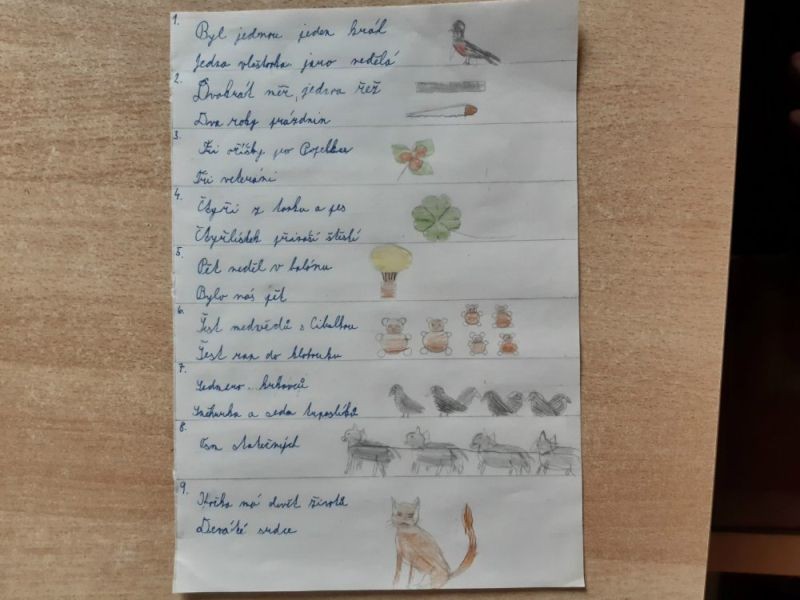 1.
Byl jednou jeden král
Jedna vlaštovka jaro nedělá
2.
Dvakrát měř, jednou řež
Dva roky prázdnin
3.
Tři oříšky pro Popelku
Tři veteráni
4.
Čtyři z tanku a pes
Čtyřlístek přináší štěstí
5.
Pět neděl v balónu
Bylo nás pět
6.
Šest medvědů s Cibulkou
Šest ran do klobouku
7.
Sedmero krkavců
Sněhurka a sedm trpaslíků
8.
Osm statečných
9.
Kočka má devět životů
Deváté srdce